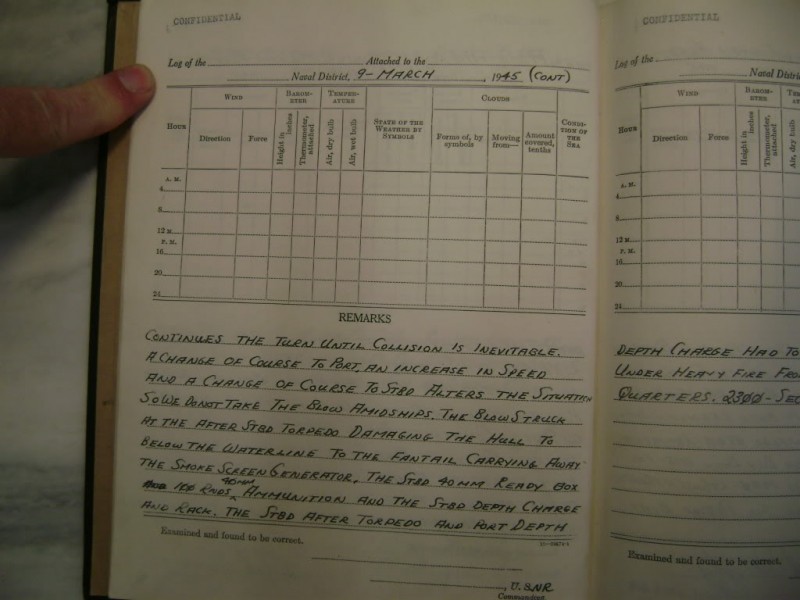 CONFIDENTIAL
Log of the Attached to the
Naval District, 9-MARCH, 1945 (CONT)
HOUR
WIND
BAROMETER
TEMPERATURE
STATE OF THE WEATHER BY SYMBOLS
CLOUDS
CONDITION OF THE SEA
Direction
Force
Height in inches
Thermometer, attached
Air, dry bulb
Air, wet bulb
Forms of, by symbols
Moving from—
Amount covered, tenths
A. M.
4
8
12 M.
P. M.
16
20
24
REMARKS
CONTINUES THE TURN UNTIL COLLISION IS INEVITABLE.
A CHANGE OF COURSE TO PORT, AN INCREASE IN SPEED
AND A CHANGE OF COURSE TO STBD ALTERS THE SITUATION
SO WE DO NOT TAKE THE BLOW AMIDSHIPS. THE BLOW STRUCK
AT THE AFTER STBD TORPEDO DAMAGING THE HULL TO
BELOW THE WATERLINE TO THE FANTAIL CARRYING AWAY
THE SMOKE SCREEN GENERATOR, THE STBD 40MM READY BOX
100 RNDS 40MM AMMUNITION AND THE STBD DEPTH CHARGE
AND RACK. THE STBD AFTER TORPEDO AND PORT DEPTH
Examined and found to be correct.
, U.SNR
Commander
CONFIDENTIAL
Log of the
Naval Distri
HOUR
WIND
BAROMETER
Direction
Force
Height in inches
Thermometer, attached
Air, dry bulb
A. M.
4
8
12 M.
P. M.
16
20
24
DEPTH CHARGE HAD TO
UNDER HEAVY FIRE FRO
QUARTERS. 2300-SEC
Examined and found to be correct.